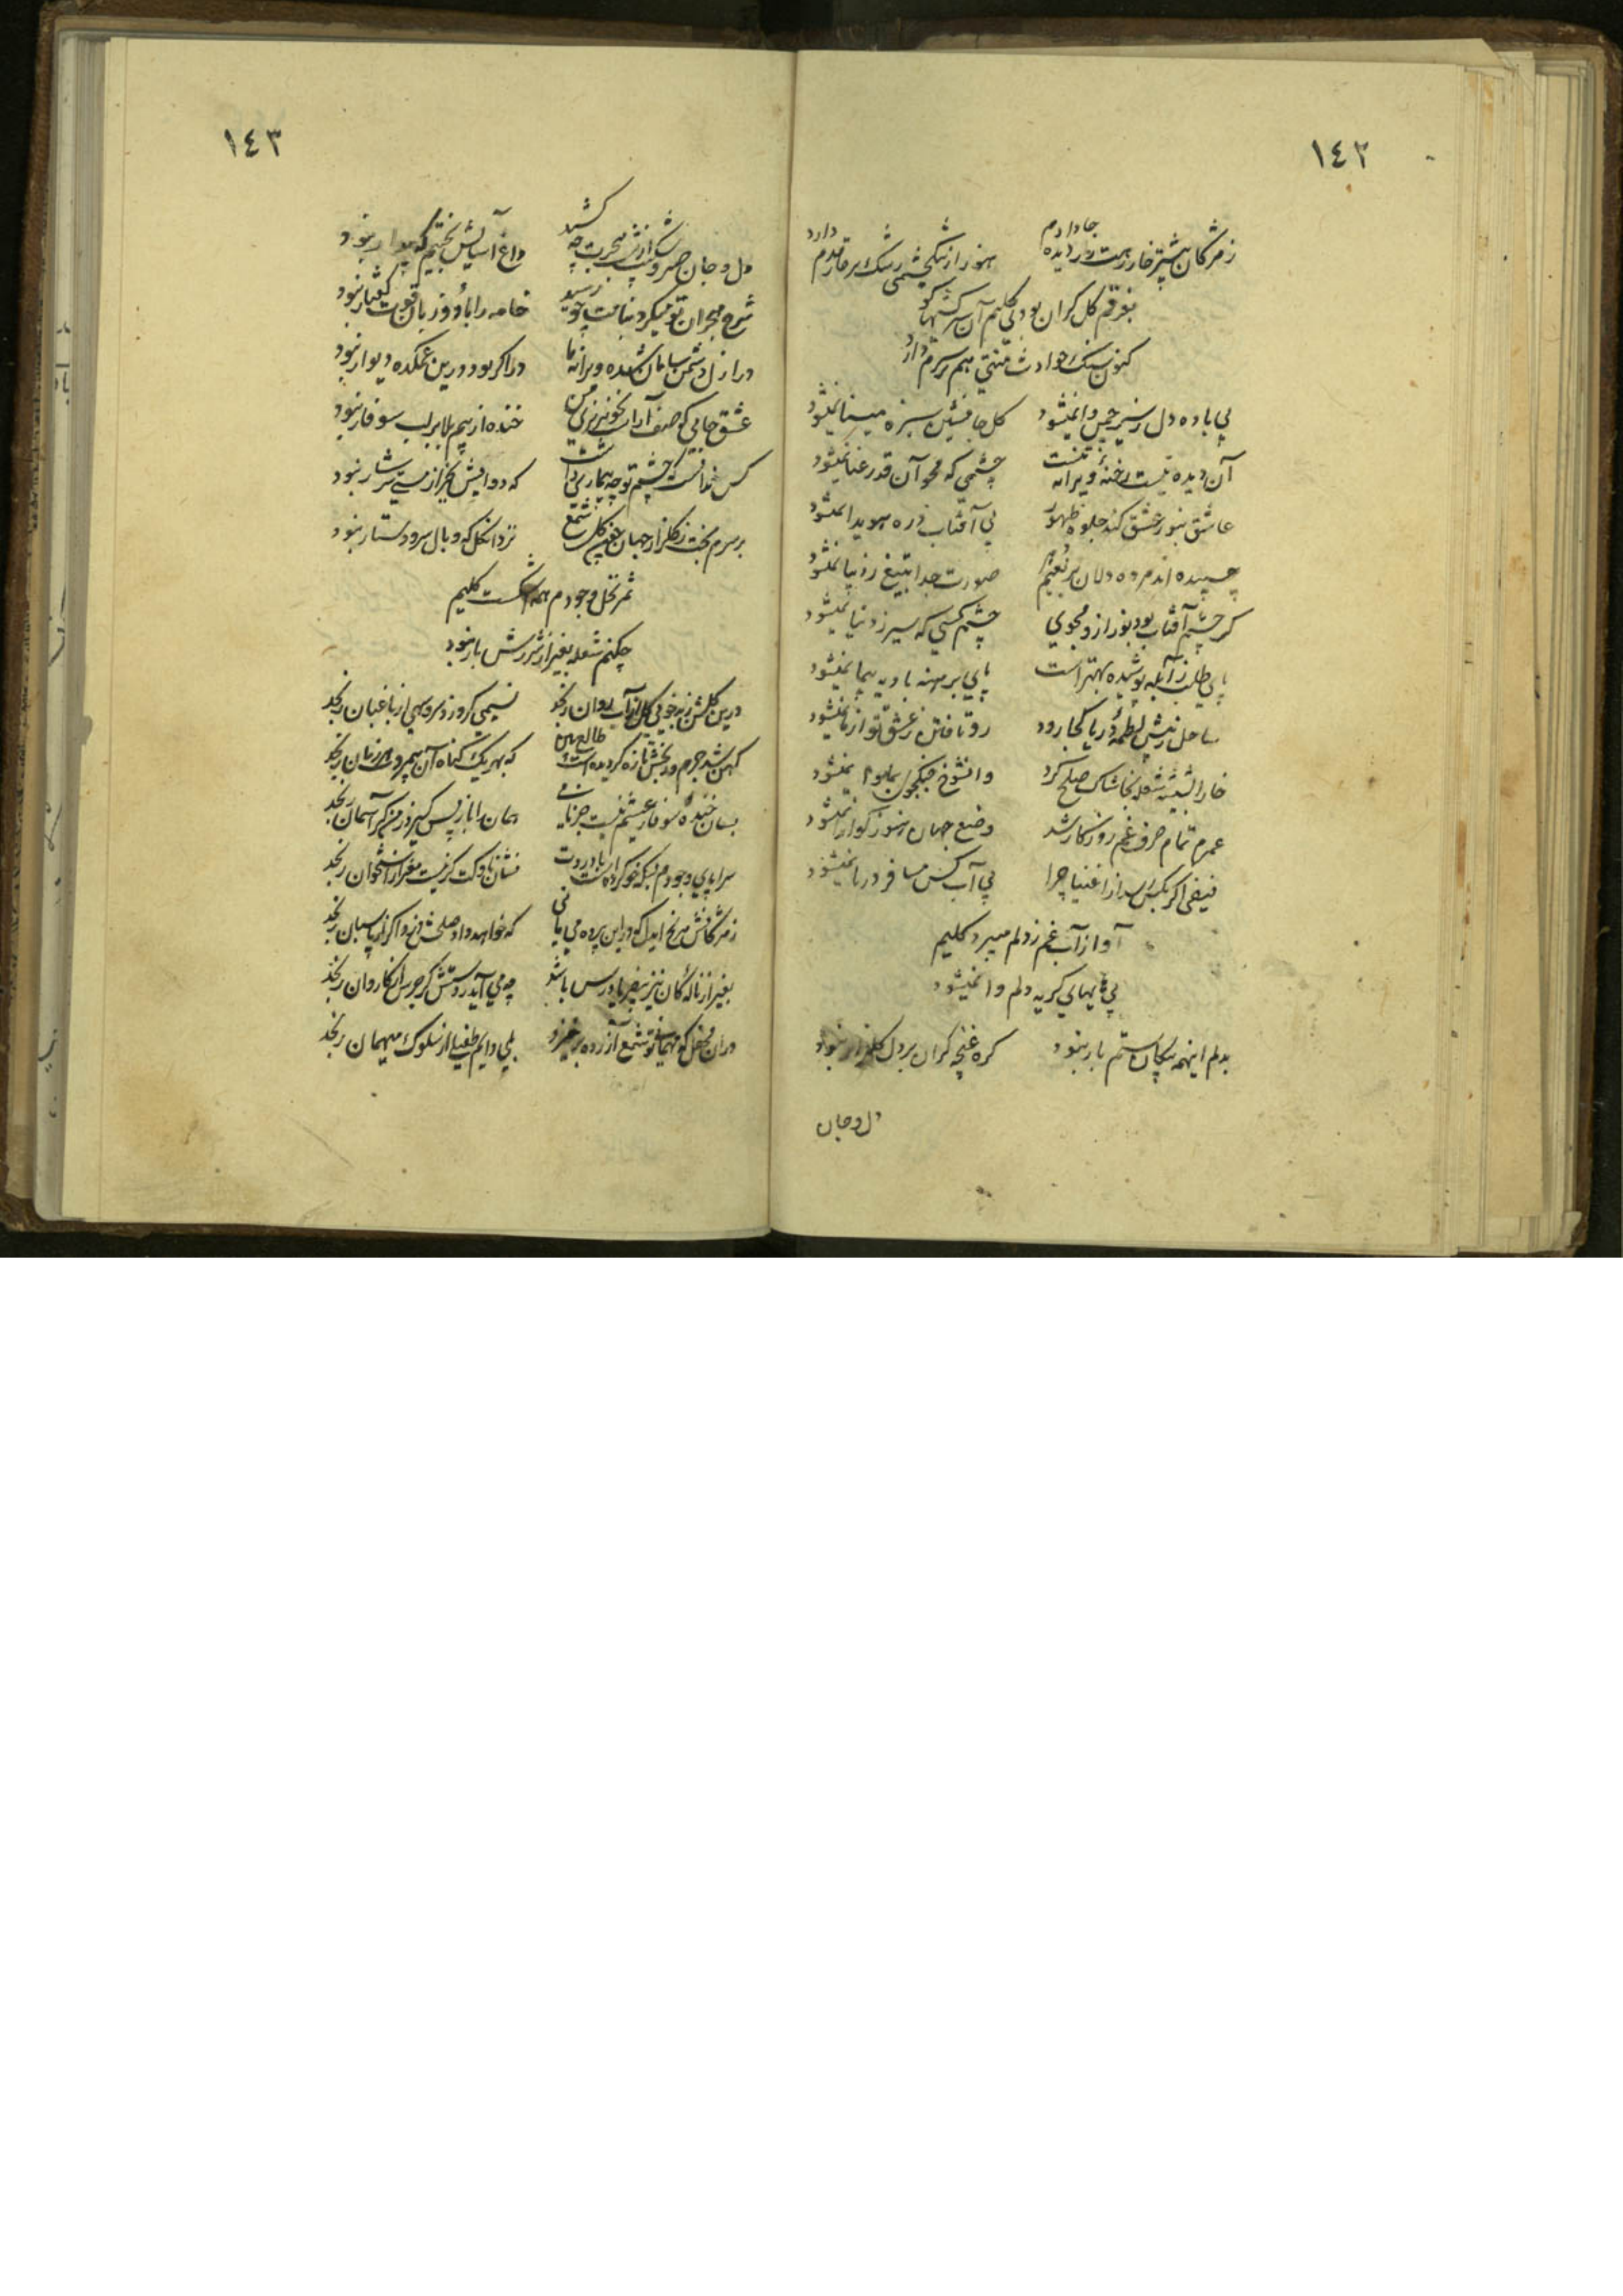 ١٤٢
ز مژگان بیشتر خار رهت در دیده جا دارم
هنوز از تنگ چشمی رشک بر خار قدم دارد
بفرقم گل گران بودی کلیم آن سرکشیها کو
کنون سنگ حوادث منتی هم بر سرم دارد
بی باده دل ز سیر چمن وا نمیشود
گل جانشین سبزه مینا نمیشود
آن دیده نیست رخنهٔ ویرانه تنست
چشمی که محو آن قد رعنا نمیشود
عاشق بنور عشق کند جلوه ظهور
بی آفتاب ذره هویدا نمیشود
چسپیده اند مرده دلان بر
صورت جدا بتیغ ز دیبا نمیشود
گر چشم آفتاب بود نور ازو مجوی
چشم کسی که سیر ز دنیا نمیشود
پای طلب ز آبله پوشیده بهتر است
پای برهنه بادیه پیما نمیشود
ساحل ز پیش لطمهٔ دریا کجا رود
رو تافتن ز عشق تو از ما نمیشود
خارا شعله بخاشاک صلح کرد
وانشوخ جنگجوی بما وا نمیشود
عمرم تمام صرف غم روزگار شد
وضع جهان هنوز گوارا نمیشود
فیضی اگر بکس رسد از اغنیا چرا
بی آب کس مسافر دریا نمیشود
آواز آب غم ز دلم میبرد کلیم
بی هایهای گریه دلم وا نمیشود
بدلم اینهمه پیکان ستم بار نبود
گره غنچه گران بر دل گلزار نبود
دل و جان
١٤٣
دل و جان صبر و شکیب از شب هجرت چه کشید
داغ آسایش بختیم که بیدار نبود
شرح هجران تو میکرد بنامت چو رسید
خامه را با دو زبان قوت گفتار نبود
در ازل دشمن سامان شده ویرانه ما
در اگر بود درین غمکده دیوار نبود
عشق جائی که صف آرا بخونریزی من
خنده از بیم بلا بر لب سوفار نبود
کس ندانست که چشم تو چه بیماری داشت
که دوایش بجز از مستی سرشار نبود
بر سرم بخت ز گلزار جهان غیر گل شمع
نزد آن گل که وبال سر و دستار نبود
ثمر نخل وجودم همه اشکست کلیم
چکنم شعله بغیر از شررش بار نبود
درین گلشن ز بدخوئی گل از آب روان رنجد
نسیمی گر وزد سرو سهی از باغبان رنجد
کهن شد جرم و رنجش تازه گردیده است طالع بین
که بهر یک گناه آن بیمروت هر زمان رنجد
بسان خندهٔ سوفار عیشم نیست جز نامی
همان را باز پس گیرد ز من گر آسمان رنجد
سراپای وجودم بسکه خو کرده است با دردت
نشان ناوکت گر نیست مغز از استخوان رنجد
ز مژگانش مرنج ایدل که در این پرده می یابی
که خواهد داد صلحش دزد اگر از پاسبان رنجد
بغیر از ناله کان نیز بی فریادرس باشد
چه می آید ز دستش گر جرس از کاروان رنجد
در آن محفل که مهمان تو شمع آزرده برخیزد
بلی دایم طفیلی از سلوک میهمان رنجد